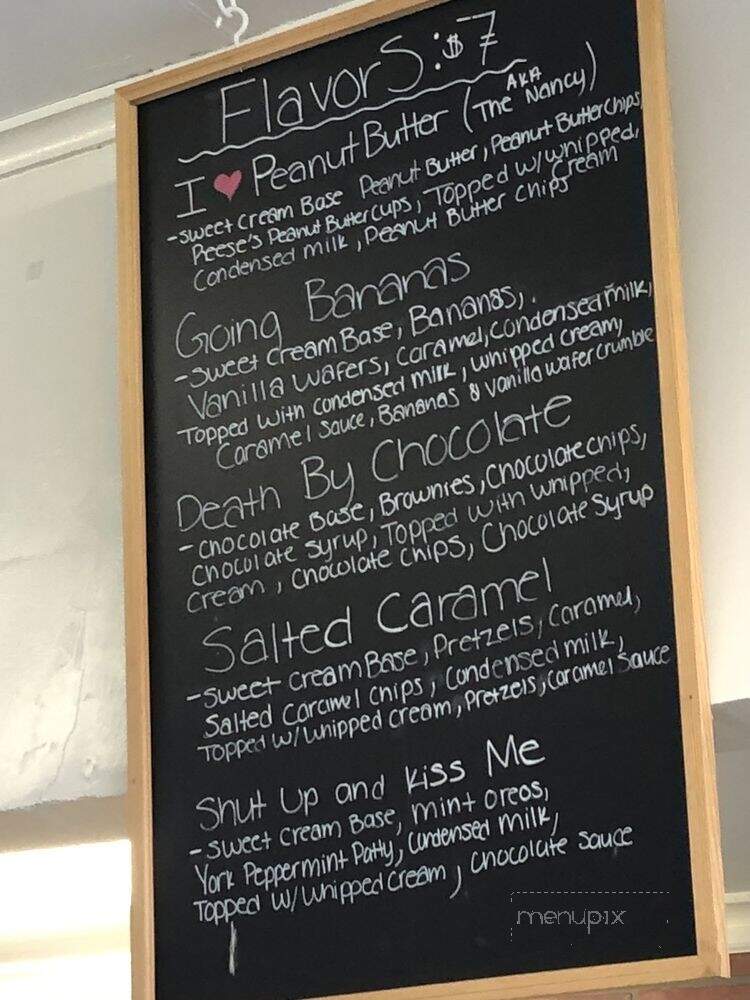 FlavorS: $7
I ♥ Peanut Butter (The AKA Nancy)
- Sweet Cream Base Peanut Butter, Peanut Butter Chips,
Reese's Peanut Butter cups, Topped w/ whipped, Cream
Condensed milk, Peanut Butter Chips
Going Bananas
- Sweet Cream Base, Bananas,
Vanilla Wafers, Caramel, Condensed milk,
Topped with condensed milk, whipped cream,
Caramel sauce, Bananas & vanilla wafer crumble
Death By Chocolate
- Chocolate Base, Brownies, Chocolate chips,
Chocolate Syrup, Topped With Whipped,
Cream, Chocolate Chips, Chocolate Syrup
Salted Caramel
- Sweet Cream Base, Pretzels, Caramel,
Salted Caramel Chips, Condensed milk,
Topped w/ whipped cream, Pretzels, Caramel Sauce
Shut Up and Kiss Me
- Sweet Cream Base, mint oreos,
York Peppermint Patty, Condensed Milk,
Topped W/ Whipped Cream, Chocolate Sauce
menupix